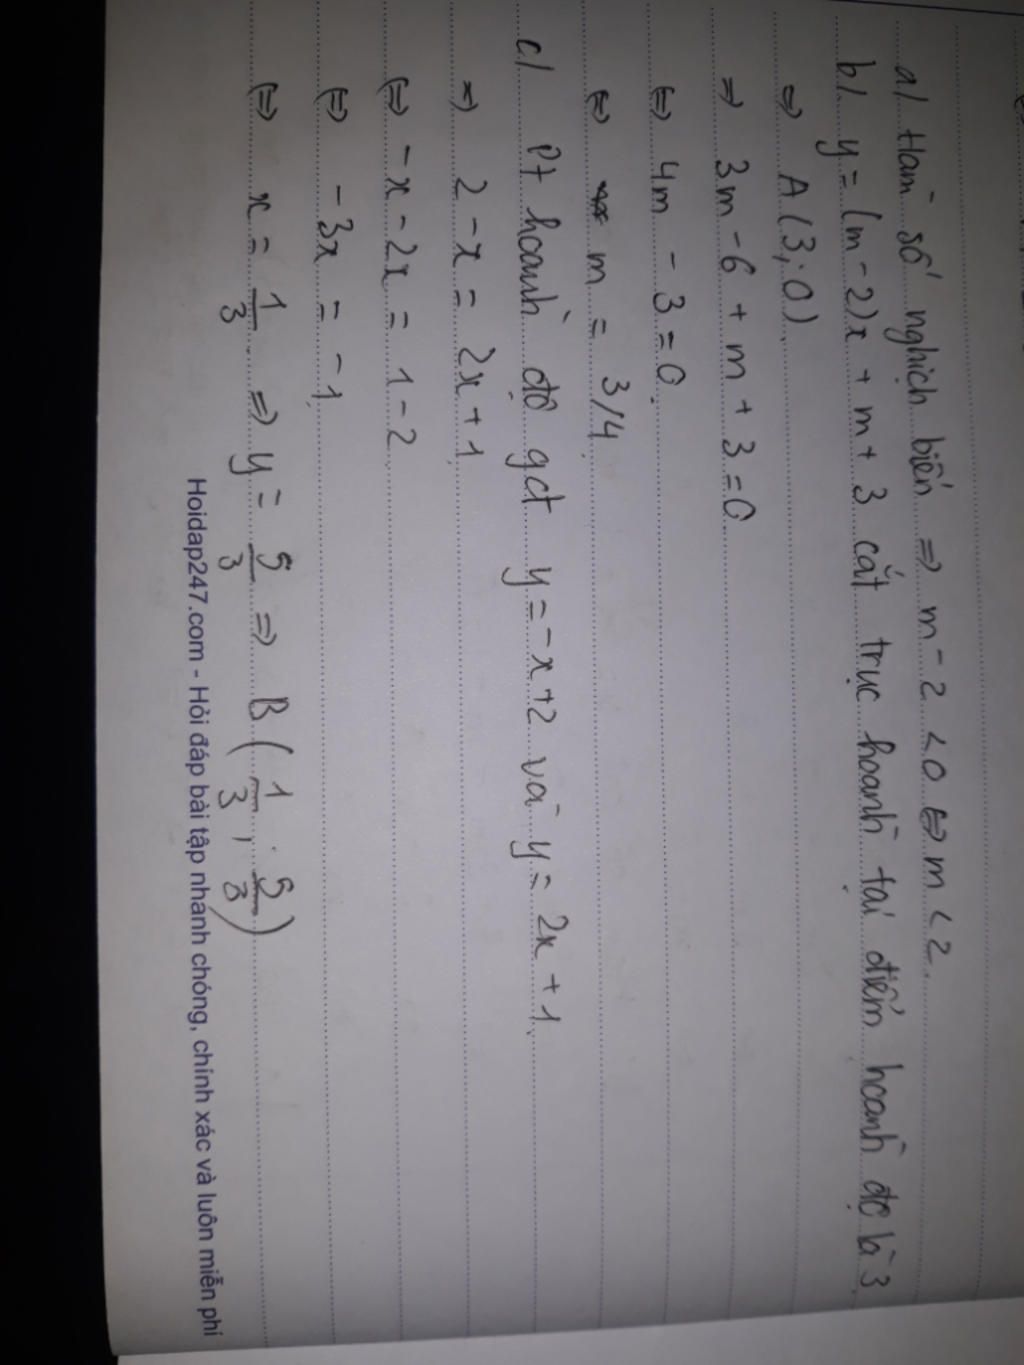 a/ Hàm số nghịch biến => m - 2 < 0 <=> m < 2.
b/ y = (m - 2)x + m + 3 cắt trục hoành tại điểm hoành độ là 3
=> A (3; 0)
=> 3m - 6 + m + 3 = 0
<=> 4m - 3 = 0
<=> m = 3/4
c/ Pt hoành độ gđ y = -x + 2 và y = 2x + 1
=> 2 - x = 2x + 1
<=> -x - 2x = 1 - 2
<=> -3x = -1
<=> x = 1/3 => y = 5/3 => B (1/3; 5/3)
Hoidap247.com - Hỏi đáp bài tập nhanh chóng, chính xác và luôn miễn phí